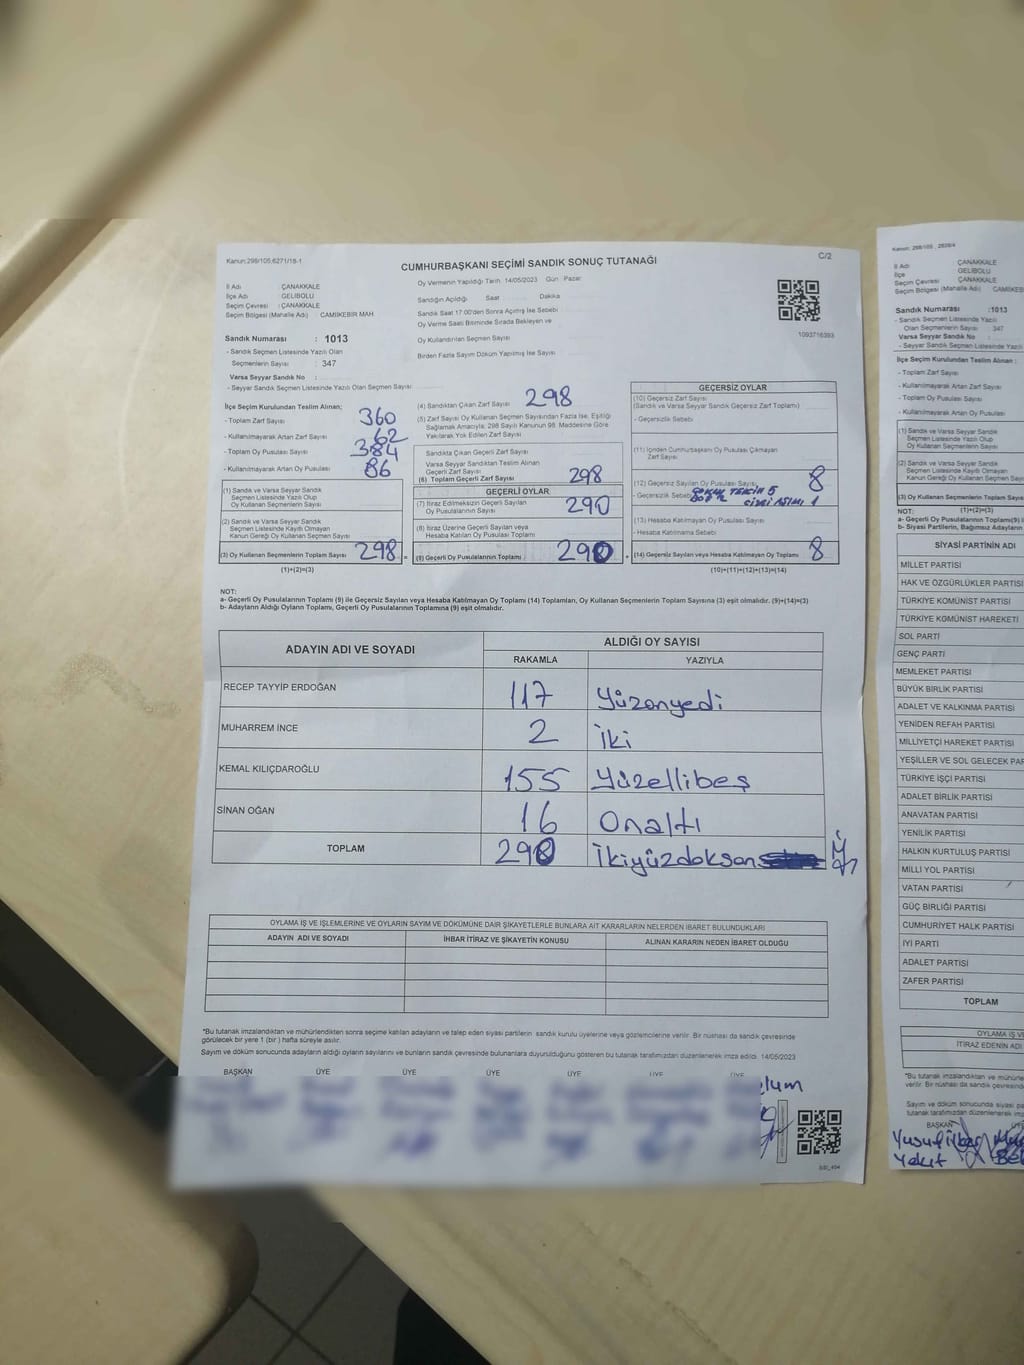 Kanun:298/105,6271/18-1
C/2
CUMHURBAŞKANI SEÇİMİ SANDIK SONUÇ TUTANAĞI
İl Adı : ÇANAKKALE
İlçe Adı : GELİBOLU
Seçim Çevresi : ÇANAKKALE
Seçim Bölgesi (Mahalle Adı) : CAMİİKEBİR MAH.
Sandık Numarası : 1013
- Sandık Seçmen Listesinde Yazılı Olan
Seçmenlerin Sayısı : 347
Varsa Seyyar Sandık No :
- Seyyar Sandık Seçmen Listesinde Yazılı Olan Seçmen Sayısı
Oy Vermenin Yapıldığı Tarih 14/05/2023 Gün Pazar
Sandığın Açıldığı Saat Dakika
Sandık Saat 17:00'den Sonra Açılmış İse Sebebi
Oy Verme Saati Bitiminde Sırada Bekleyen ve
Oy Kullandırılan Seçmen Sayısı
Birden Fazla Sayım Döküm Yapılmış İse Sayısı
1093716393
İlçe Seçim Kurulundan Teslim Alınan;
- Toplam Zarf Sayısı 360
- Kullanılmayarak Artan Zarf Sayısı 62
- Toplam Oy Pusulası Sayısı 384
- Kullanılmayarak Artan Oy Pusulası 86
(1) Sandık ve Varsa Seyyar Sandık
Seçmen Listesinde Yazılı Olup
Oy Kullanan Seçmenlerin Sayısı
(2) Sandık ve Varsa Seyyar Sandık
Seçmen Listesinde Kayıtlı Olmayan
Kanun Gereği Oy Kullanan Seçmen Sayısı
(3) Oy Kullanan Seçmenlerin Toplam Sayısı 298 =
(1)+(2)=(3)
(4) Sandıktan Çıkan Zarf Sayısı 298
(5) Zarf Sayısı Oy Kullanan Seçmen Sayısından Fazla İse, Eşitliği
Sağlamak Amacıyla; 298 Sayılı Kanunun 98. Maddesine Göre
Yakılarak Yok Edilen Zarf Sayısı
Sandıkta Çıkan Geçerli Zarf Sayısı
Varsa Seyyar Sandıktan Teslim Alınan
Geçerli Zarf Sayısı
(6) Toplam Geçerli Zarf Sayısı 298
GEÇERLİ OYLAR
(7) İtiraz Edilmeksizin Geçerli Sayılan
Oy Pusulalarının Sayısı 290
(8) İtiraz Üzerine Geçerli Sayılan veya
Hesaba Katılan Oy Pusulası Toplamı
(9) Geçerli Oy Pusulalarının Toplamı 290 +
GEÇERSİZ OYLAR
(10) Geçersiz Zarf Sayısı
(Sandık ve Varsa Seyyar Sandık Geçersiz Zarf Toplamı)
- Geçersizlik Sebebi
(11) İçinden Cumhurbaşkanı Oy Pusulası Çıkmayan
Zarf Sayısı
(12) Geçersiz Sayılan Oy Pusulası Sayısı 8
- Geçersizlik Sebebi
(13) Hesaba Katılmayan Oy Pusulası Sayısı
- Hesaba Katılmama Sebebi
(14) Geçersiz Sayılan veya Hesaba Katılmayan Oy Toplamı 8
(10)+(11)+(12)+(13)=(14)
NOT:
a- Geçerli Oy Pusulalarının Toplamı (9) ile Geçersiz Sayılan veya Hesaba Katılmayan Oy Toplamı (14) Toplamları, Oy Kullanan Seçmenlerin Toplam Sayısına (3) eşit olmalıdır. (9)+(14)=(3)
b- Adayların Aldığı Oyların Toplamı, Geçerli Oy Pusulalarının Toplamına (9) eşit olmalıdır.
ADAYIN ADI VE SOYADI
ALDIĞI OY SAYISI
RAKAMLA YAZIYLA
RECEP TAYYİP ERDOĞAN 117 Yüzonyedi
MUHARREM İNCE 2 İki
KEMAL KILIÇDAROĞLU 155 Yüzellibeş
SİNAN OĞAN 16 Onaltı
TOPLAM 290 İkiyüzdoksan
OYLAMA İŞ VE İŞLEMLERİNE VE OYLARIN SAYIM VE DÖKÜMÜNE DAİR ŞİKAYETLERLE BUNLARA AİT KARARLARIN NELERDEN İBARET BULUNDUKLARI
ADAYIN ADI VE SOYADI İHBAR İTİRAZ VE ŞİKAYETİN KONUSU ALINAN KARARIN NEDEN İBARET OLDUĞU
*Bu tutanak imzalandıktan ve mühürlendikten sonra seçime katılan adayların ve talep eden siyasi partilerin sandık kurulu üyelerine veya gözlemcilerine verilir. Bir nüshası da sandık çevresinde
görülecek bir yere 1 (bir) hafta süreyle asılır.
Sayım ve döküm sonucunda adayların aldığı oyların sayılarını ve bunların sandık çevresinde bulunanlara duyurulduğunu gösteren bu tutanak tarafımızdan düzenlenerek imza edildi. 14/05/2023
BAŞKAN ÜYE ÜYE ÜYE ÜYE ÜYE ÜYE
Kanun: 298/105, 2839/4
İl Adı ÇANAKKALE
İlçe Adı : GELİBOLU
Seçim Çevresi : ÇANAKKALE
Seçim Bölgesi (Mahalle Adı) : CAMİİKEBİR
Sandık Numarası :1013
- Sandık Seçmen Listesinde Yazılı
Olan Seçmenlerin Sayısı : 347
Varsa Seyyar Sandık No :
- Seyyar Sandık Seçmen Listesinde Yazılı
İlçe Seçim Kurulundan Teslim Alınan :
- Toplam Zarf Sayısı
- Kullanılmayarak Artan Zarf Sayısı
- Toplam Oy Pusulası Sayısı
- Kullanılmayarak Artan Oy Pusulası
(1) Sandık ve Varsa Seyyar Sandık
Seçmen Listesinde Yazılı Olup
Oy Kullanan Seçmenlerin Sayısı
(2) Sandık ve Varsa Seyyar Sandık
Seçmen Listesinde Kayıtlı Olmayan
Kanun Gereği Oy Kullanan Seçmen
(3) Oy Kullanan Seçmenlerin Toplam Sayısı
(1)+(2)=(3)
NOT:
a- Geçerli Oy Pusulalarının Toplamı(9)
b- Siyasi Partilerin, Bağımsız Adayların
SİYASİ PARTİNİN ADI
MİLLET PARTİSİ
HAK VE ÖZGÜRLÜKLER PARTİSİ
TÜRKİYE KOMÜNİST PARTİSİ
TÜRKİYE KOMÜNİST HAREKETİ
SOL PARTİ
GENÇ PARTİ
MEMLEKET PARTİSİ
BÜYÜK BİRLİK PARTİSİ
ADALET VE KALKINMA PARTİSİ
YENİDEN REFAH PARTİSİ
MİLLİYETÇİ HAREKET PARTİSİ
YEŞİLLER VE SOL GELECEK PAR
TÜRKİYE İŞÇİ PARTİSİ
ADALET BİRLİK PARTİSİ
ANAVATAN PARTİSİ
YENİLİK PARTİSİ
HALKIN KURTULUŞ PARTİSİ
MİLLİ YOL PARTİSİ
VATAN PARTİSİ
GÜÇ BİRLİĞİ PARTİSİ
CUMHURİYET HALK PARTİSİ
İYİ PARTİ
ADALET PARTİSİ
ZAFER PARTİSİ
TOPLAM
OYLAMA İŞ VE
İTİRAZ EDENİN ADI
*Bu tutanak imzalandıktan ve mühürle
verilir. Bir nüshası da sandık çevresinde
Sayım ve döküm sonucunda siyasi pa
tutanak tarafımızdan düzenlenerek imza
BAŞKAN